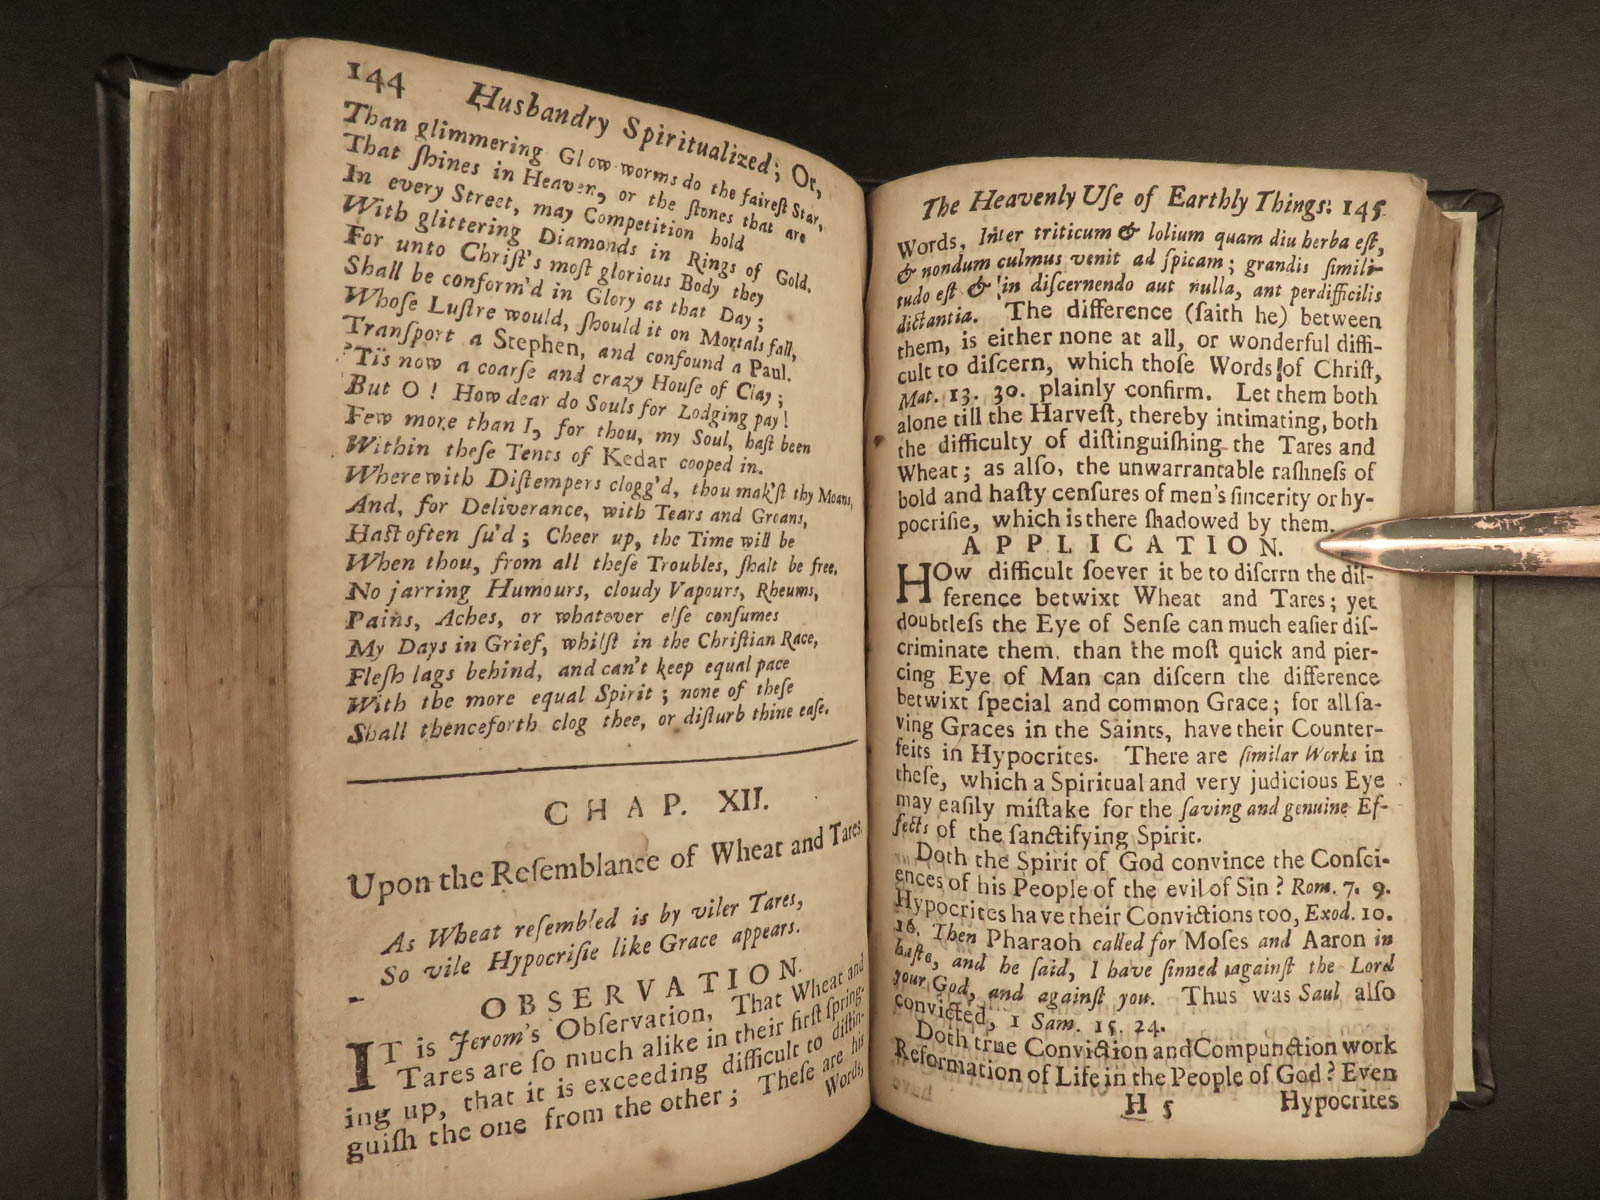 144 Husbandry Spiritualized; Or,
Than glimmering Glow-worms do the faireſt Star,
That ſhines in Heaven, or the ſtones that are
In every Street, may Competition hold
With glittering Diamonds in Rings of Gold.
For unto Chriſt's moſt glorious Body they
Shall be conform'd in Glory at that Day;
Whoſe Luſtre would, ſhould it on Mortals fall,
Tranſport a Stephen, and confound a Paul.
'Tis now a coarſe and crazy Houſe of Clay;
But O! How dear do Souls for Lodging pay!
Few more than I, for thou, my Soul, haſt been
Within theſe Tents of Kedar cooped in.
Where with Diſtempers clogg'd, thou mak'ſt thy Moans,
And, for Deliverance, with Tears and Groans,
Haſt often ſu'd; Cheer up, the Time will be
When thou, from all theſe Troubles, ſhalt be free,
No jarring Humours, cloudy Vapours, Rheums,
Pains, Aches, or whatever elſe conſumes
My Days in Grief, whilſt in the Chriſtian Race,
Fleſh lags behind, and can't keep equal pace
With the more equal Spirit; none of theſe
Shall thenceforth clog thee, or diſturb thine eaſe.
CHAP. XII.
Upon the Reſemblance of Wheat and Tares.
As Wheat reſembled is by viler Tares,
So vile Hypocriſie like Grace appears.
OBSERVATION.
IT is Jerom's Obſervation, That Wheat and
Tares are ſo much alike in their firſt ſpring-
ing up, that it is exceeding difficult to diſtin-
guiſh the one from the other; Theſe are his
Words,
The Heavenly Uſe of Earthly Things. 145
Words, Inter triticum & lolium quam diu herba eſt,
& nondum culmus venit ad ſpicam; grandis ſimili-
tudo eſt & in diſcernendo aut nulla, ant perdifficilis
dictantia. The difference (ſaith he) between
them, is either none at all, or wonderful diffi-
cult to diſcern, which thoſe Words of Chriſt,
Mat. 13. 30. plainly confirm. Let them both
alone till the Harveſt, thereby intimating, both
the difficulty of diſtinguiſhing the Tares and
Wheat; as alſo, the unwarrantable raſhneſs of
bold and haſty cenſures of men's ſincerity or hy-
pocriſie, which is there ſhadowed by them.
APPLICATION.
HOw difficult ſoever it be to diſcrrn the dif-
ference betwixt Wheat and Tares; yet
doubtleſs the Eye of Senſe can much eaſier diſ-
criminate them. than the moſt quick and pier-
cing Eye of Man can diſcern the difference
betwixt ſpecial and common Grace; for all ſa-
ving Graces in the Saints, have their Counter-
feits in Hypocrites. There are ſimilar Works in
theſe, which a Spiritual and very judicious Eye
may eaſily miſtake for the ſaving and genuine Ef-
fects of the ſanctifying Spirit.
Doth the Spirit of God convince the Conſci-
ences of his People of the evil of Sin? Rom. 7. 9.
Hypocrites have their Convictions too, Exod. 10.
16. Then Pharaoh called for Moſes and Aaron in
haſte, and he ſaid, I have ſinned against the Lord
your God, and againſt you. Thus was Saul alſo
convicted, 1 Sam. 15. 24.
Doth true Conviction and Compunction work
Reformation of Life in the People of God? Even
H 5 Hypocrites